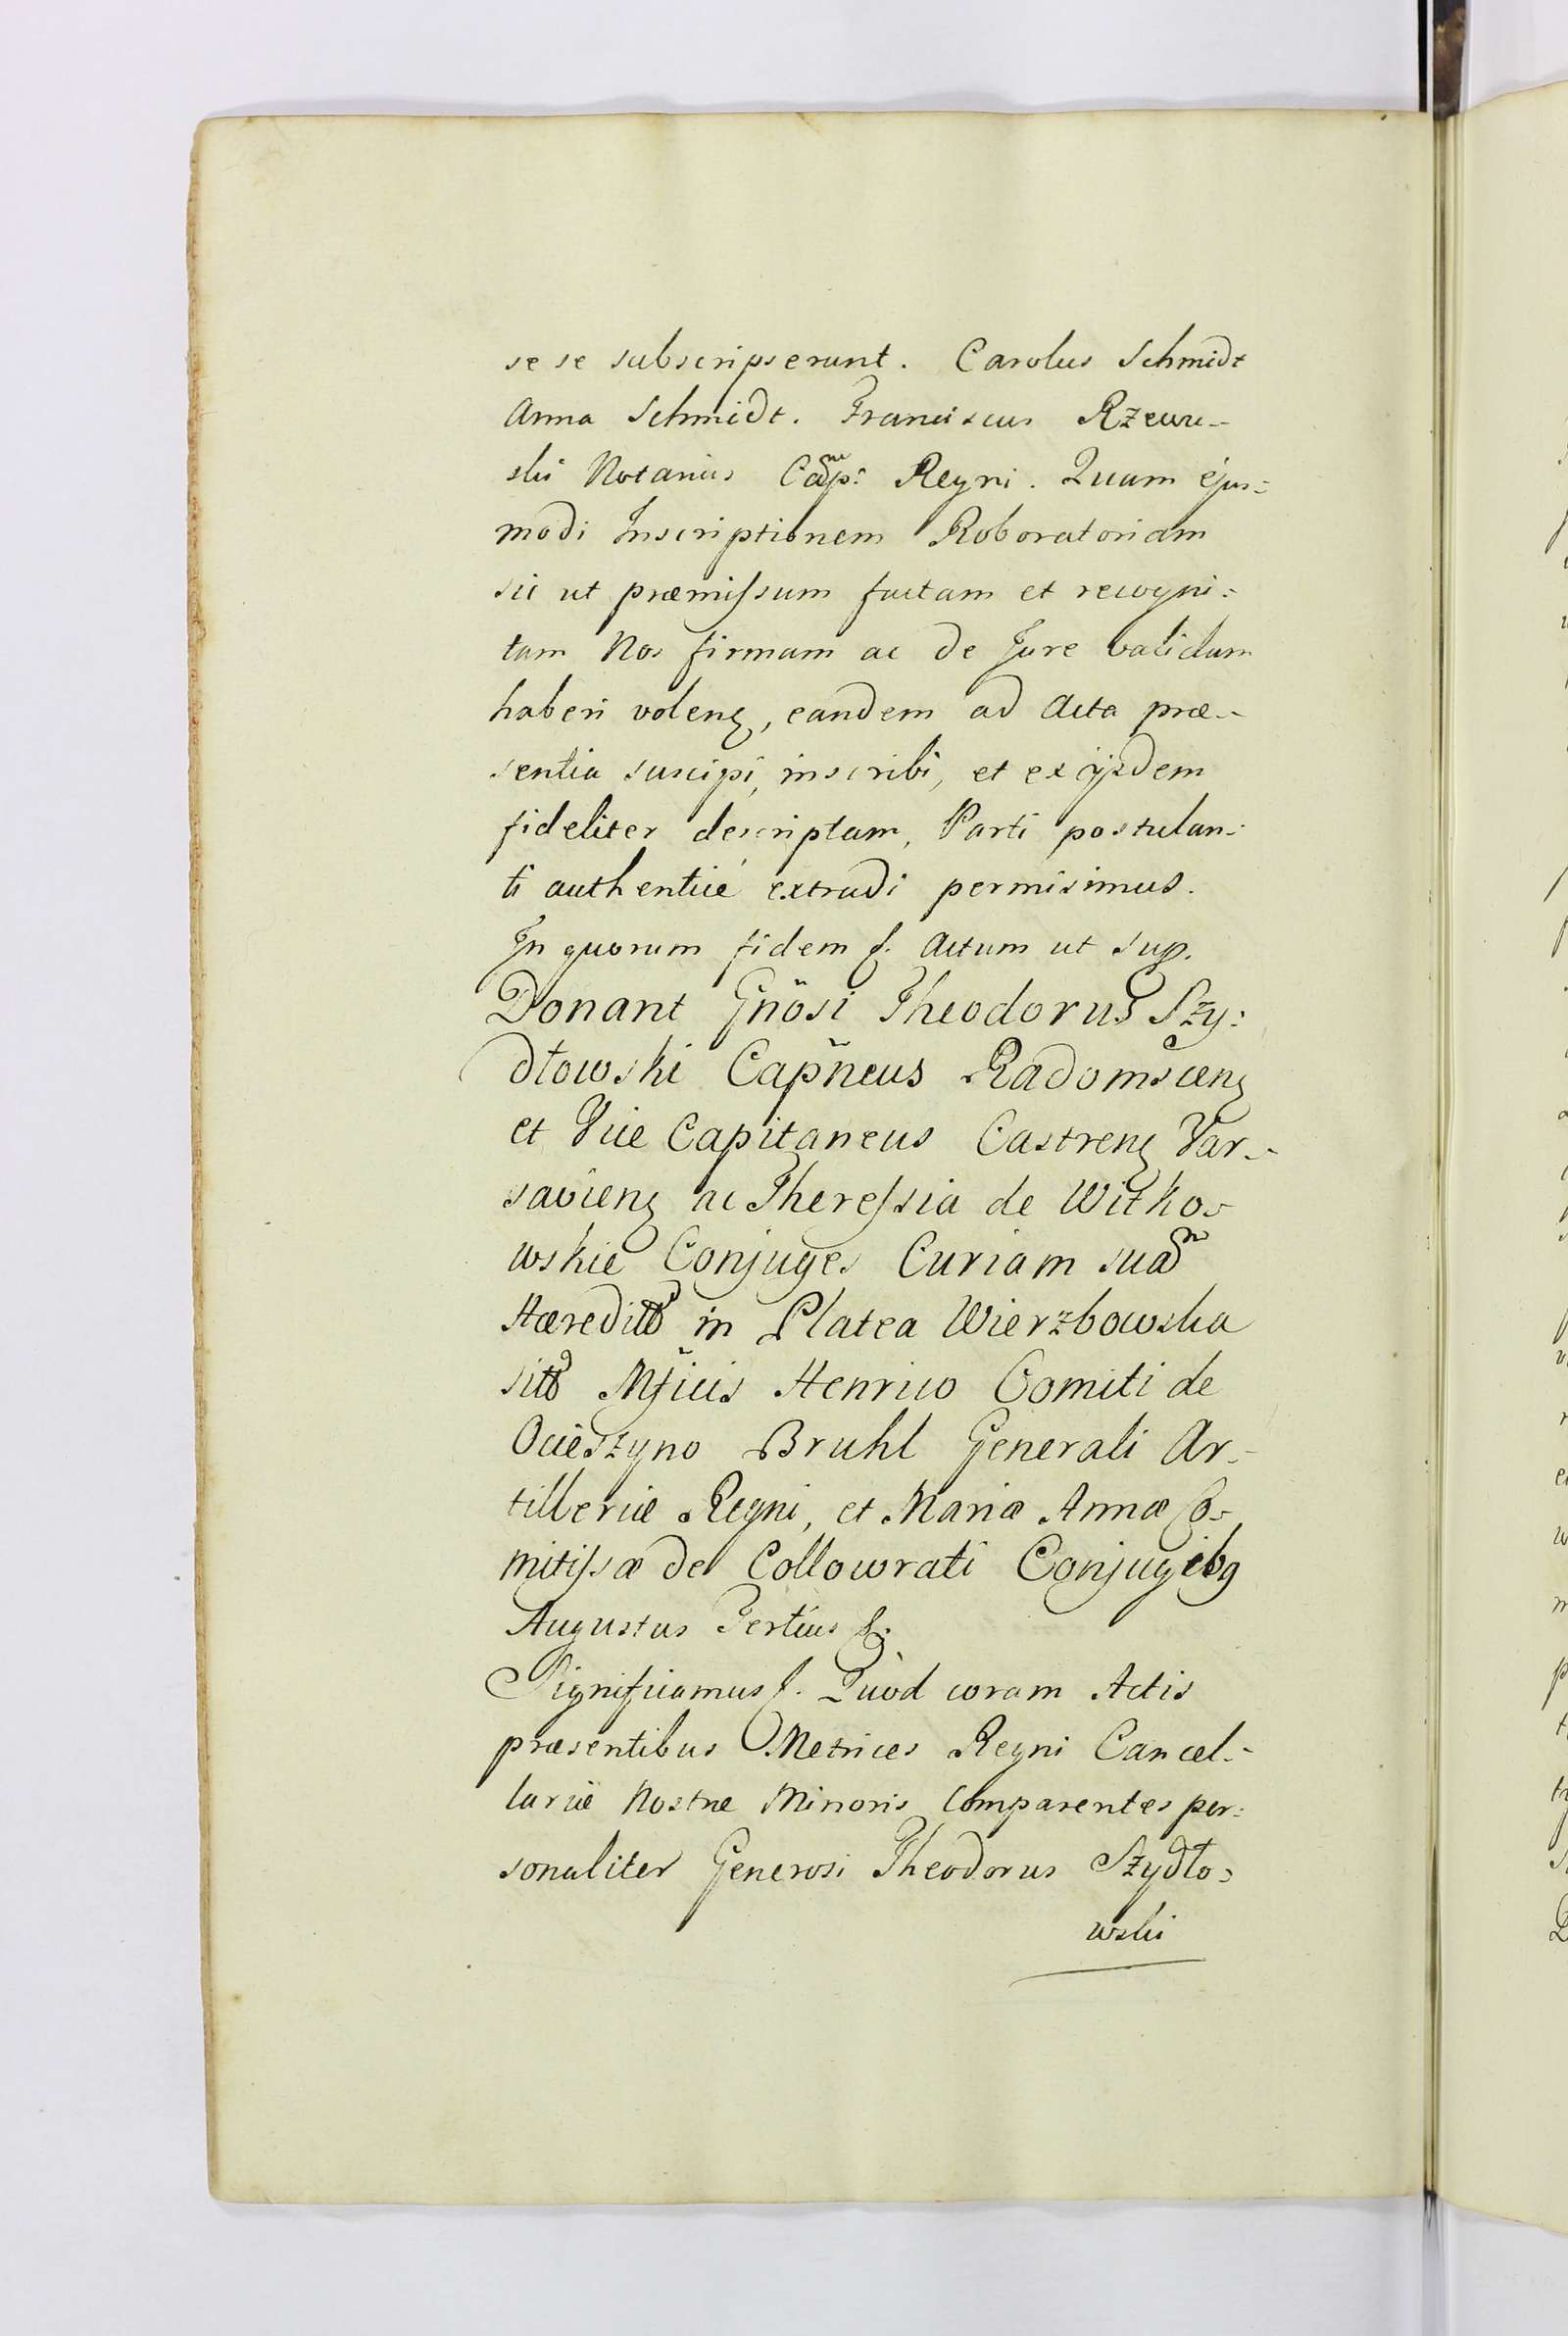 se se subscripserunt. Carolus Schmidt
Anna Schmidt. Franciscus Rzewu-
ski Notarius Camp: Regni. Quam ejus=
modi Inscriptionem Roboratoriam
sic ut præmissum factam et recogni=
tam Nos firmam ac de Jure validam
haberi volenꝫ, eandem ad Acta præ-
sentia suscipi, inscribi, et ex ijsdem
fideliter descriptam, Parti postulan=
ti authenticé extradi permisimus.
In quorum fidem &. Actum ut sup.
Donant Gn̄osi Theodorus Szy=
dłowski Capn̄eus Radomscenꝫ
et Vice Capitaneus Castrenꝫ Var-
savienꝫ ac Theressia de Witko-
wskie Conjuges Curiam suam
Hæreditt in Platea Wierzbowska
sitt Mf̄icis Henrico Comiti de
Ocieszyno Bruhl Generali Ar-
tilleriæ Regni, et Mariæ Annæ Co-
mitissæ de Collowrati Conjugibꝫ
Augustus Tertius &.
Significamus &. Quòd coram Actis
præsentibus Metrices Regni Cancel-
lariæ Nostræ Minoris Comparentes per=
sonaliter Generosi Theodorus Szydło=
wski